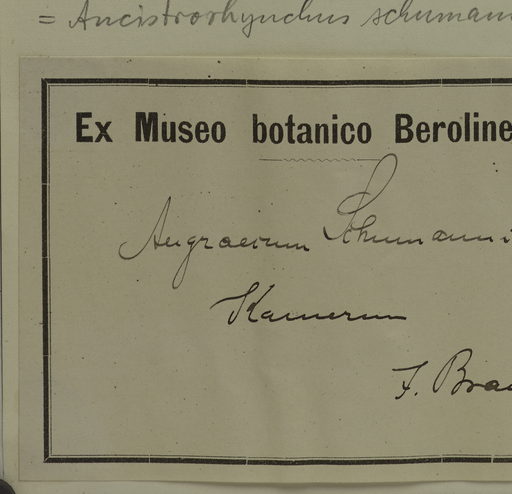 = Ancistrorhynchus schumann
Ex Museo botanico Beroline
Angraecum Schumanni
Kamerun
J. Brau